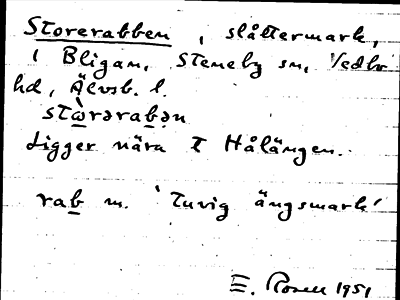 Storerabben, slåttermark,
i Bligan, Steneby sn, Vedbo
hd, Älvsb. l.
stẁ̱rəraḇən
Ligger nära t Hålängen.
raḇ m. 'tuvig ängsmark'
E. Rosell 1951